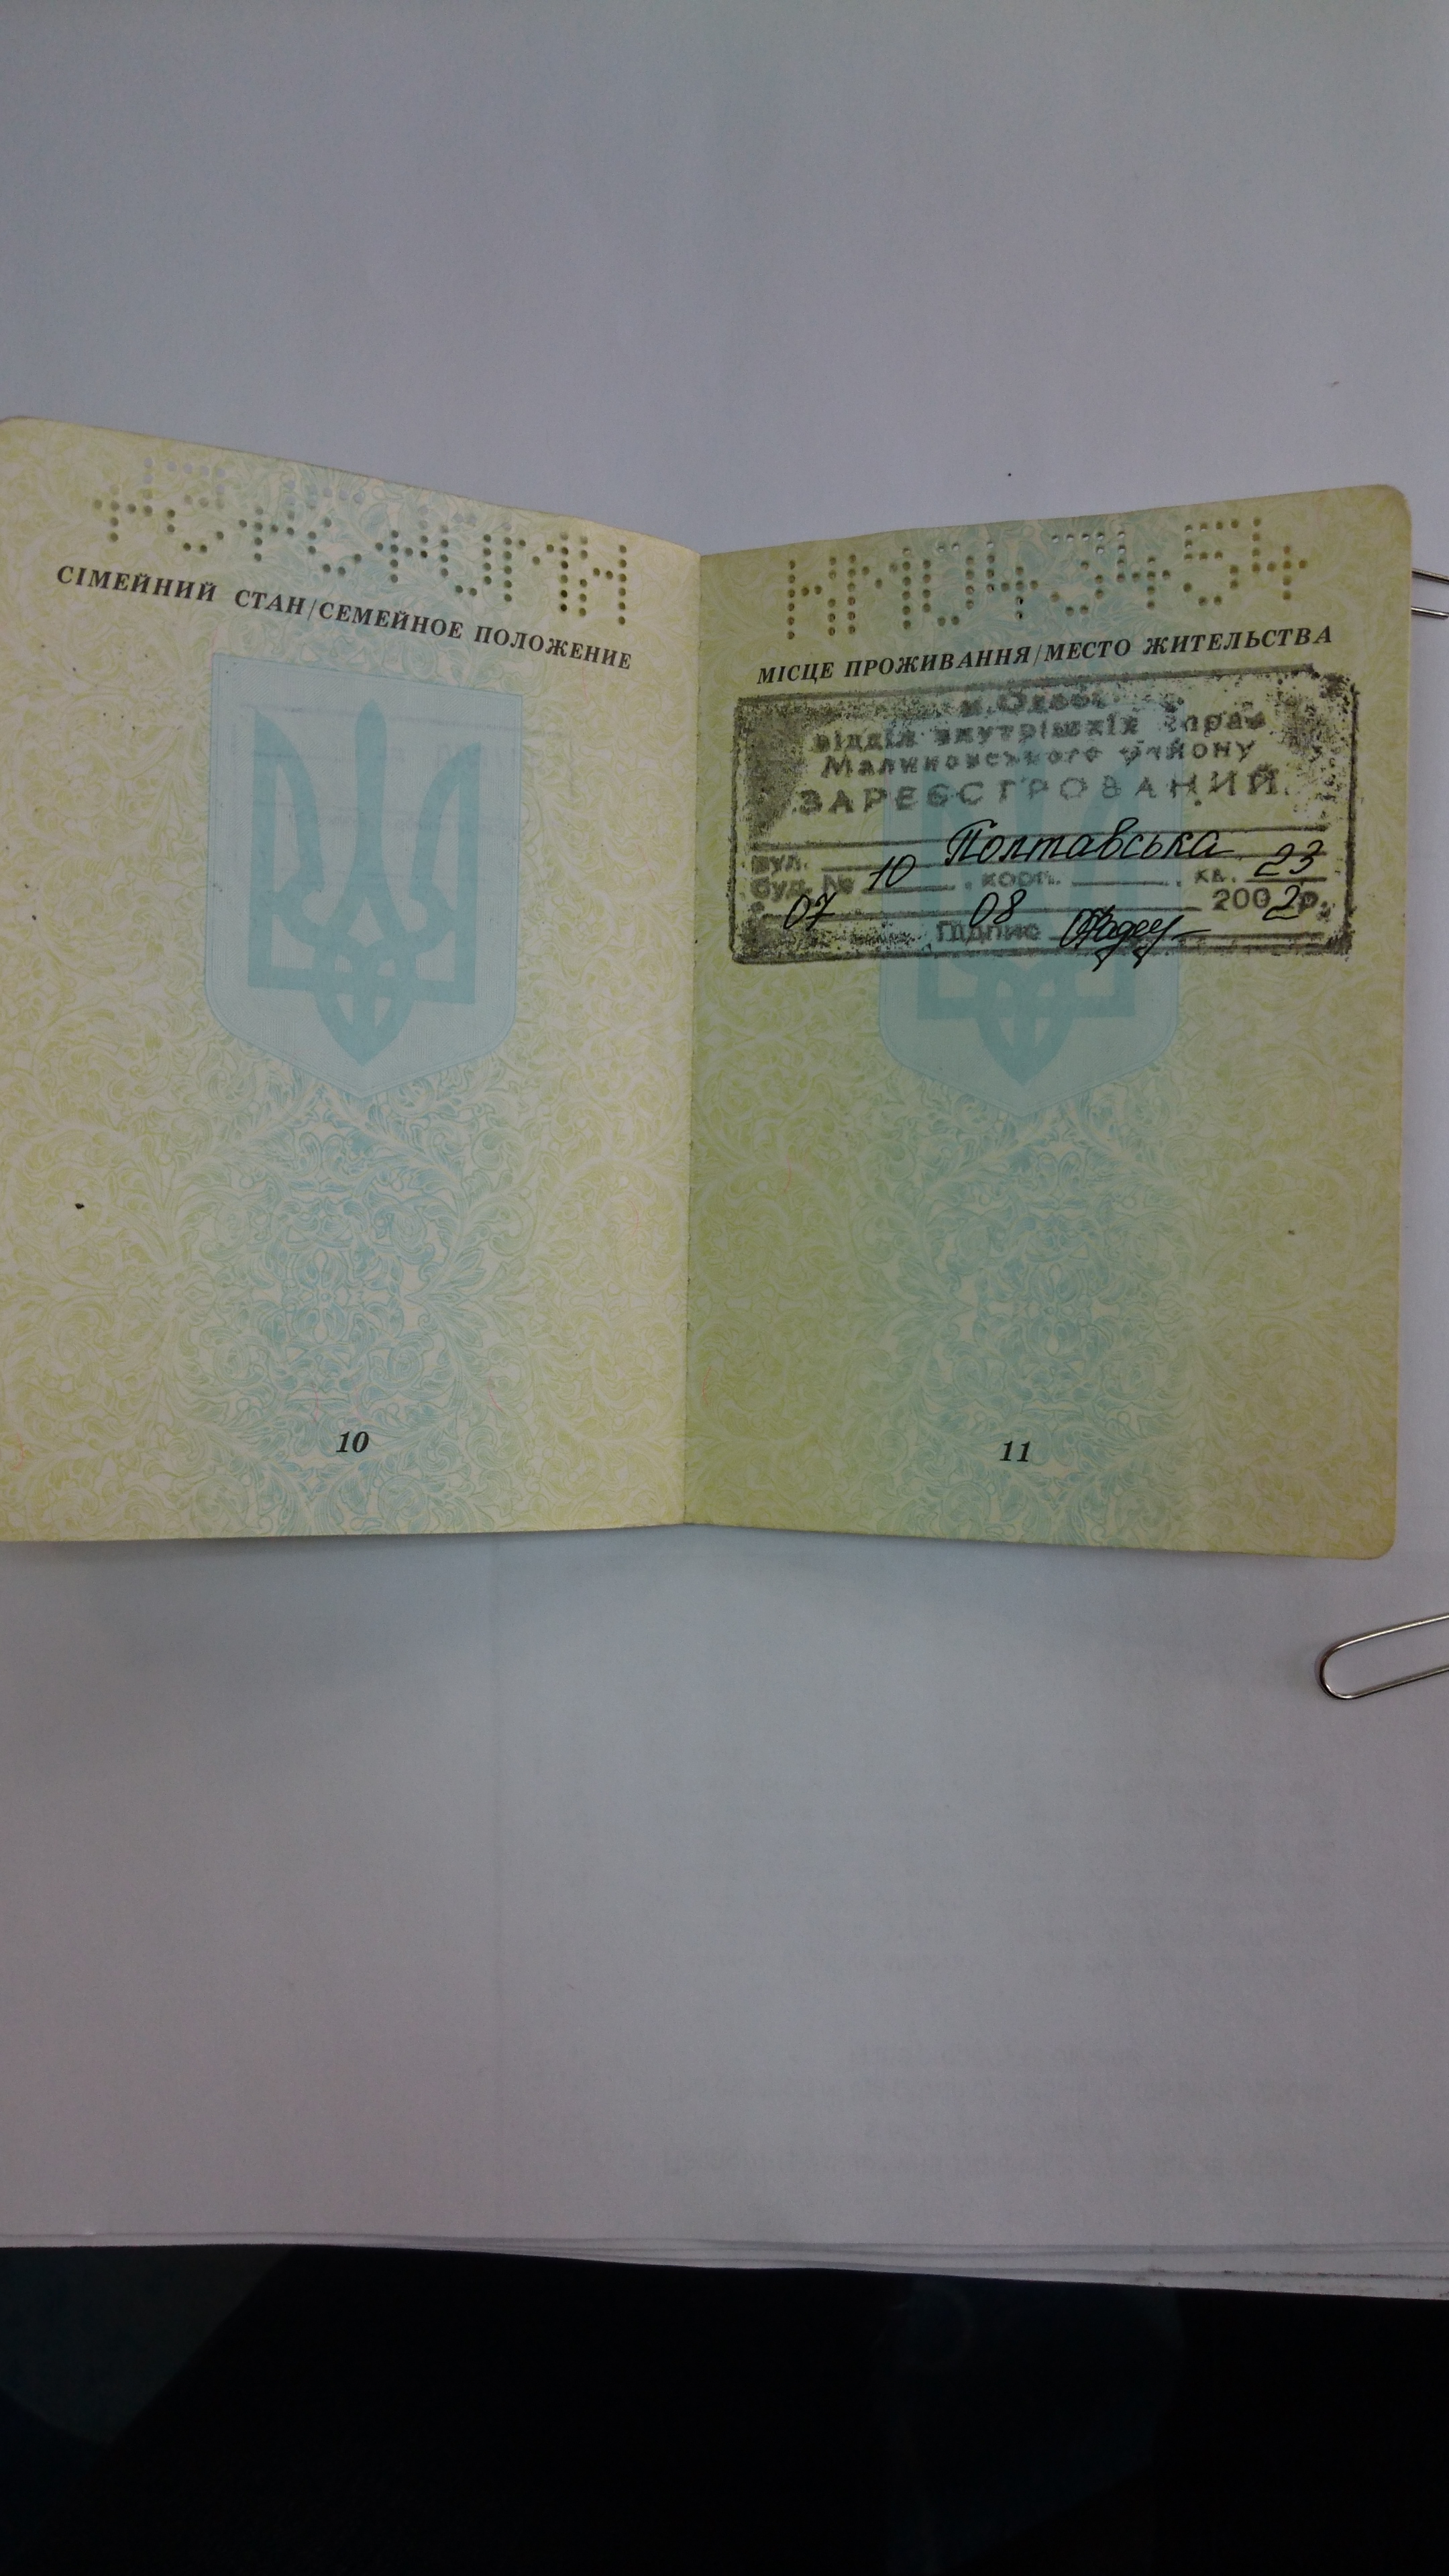 СІМЕЙНИЙ СТАН/СЕМЕЙНОЕ ПОЛОЖЕНИЕ
10
МІСЦЕ ПРОЖИВАННЯ/МЕСТО ЖИТЕЛЬСТВА
м. Одеса
відділ внутрішніх справ
Малиновського району
ЗАРЕЄСТРОВАНИЙ
вул. Полтавська
буд. № 10, корп. , кв. 23
07 08 2002р.
Підпис
11